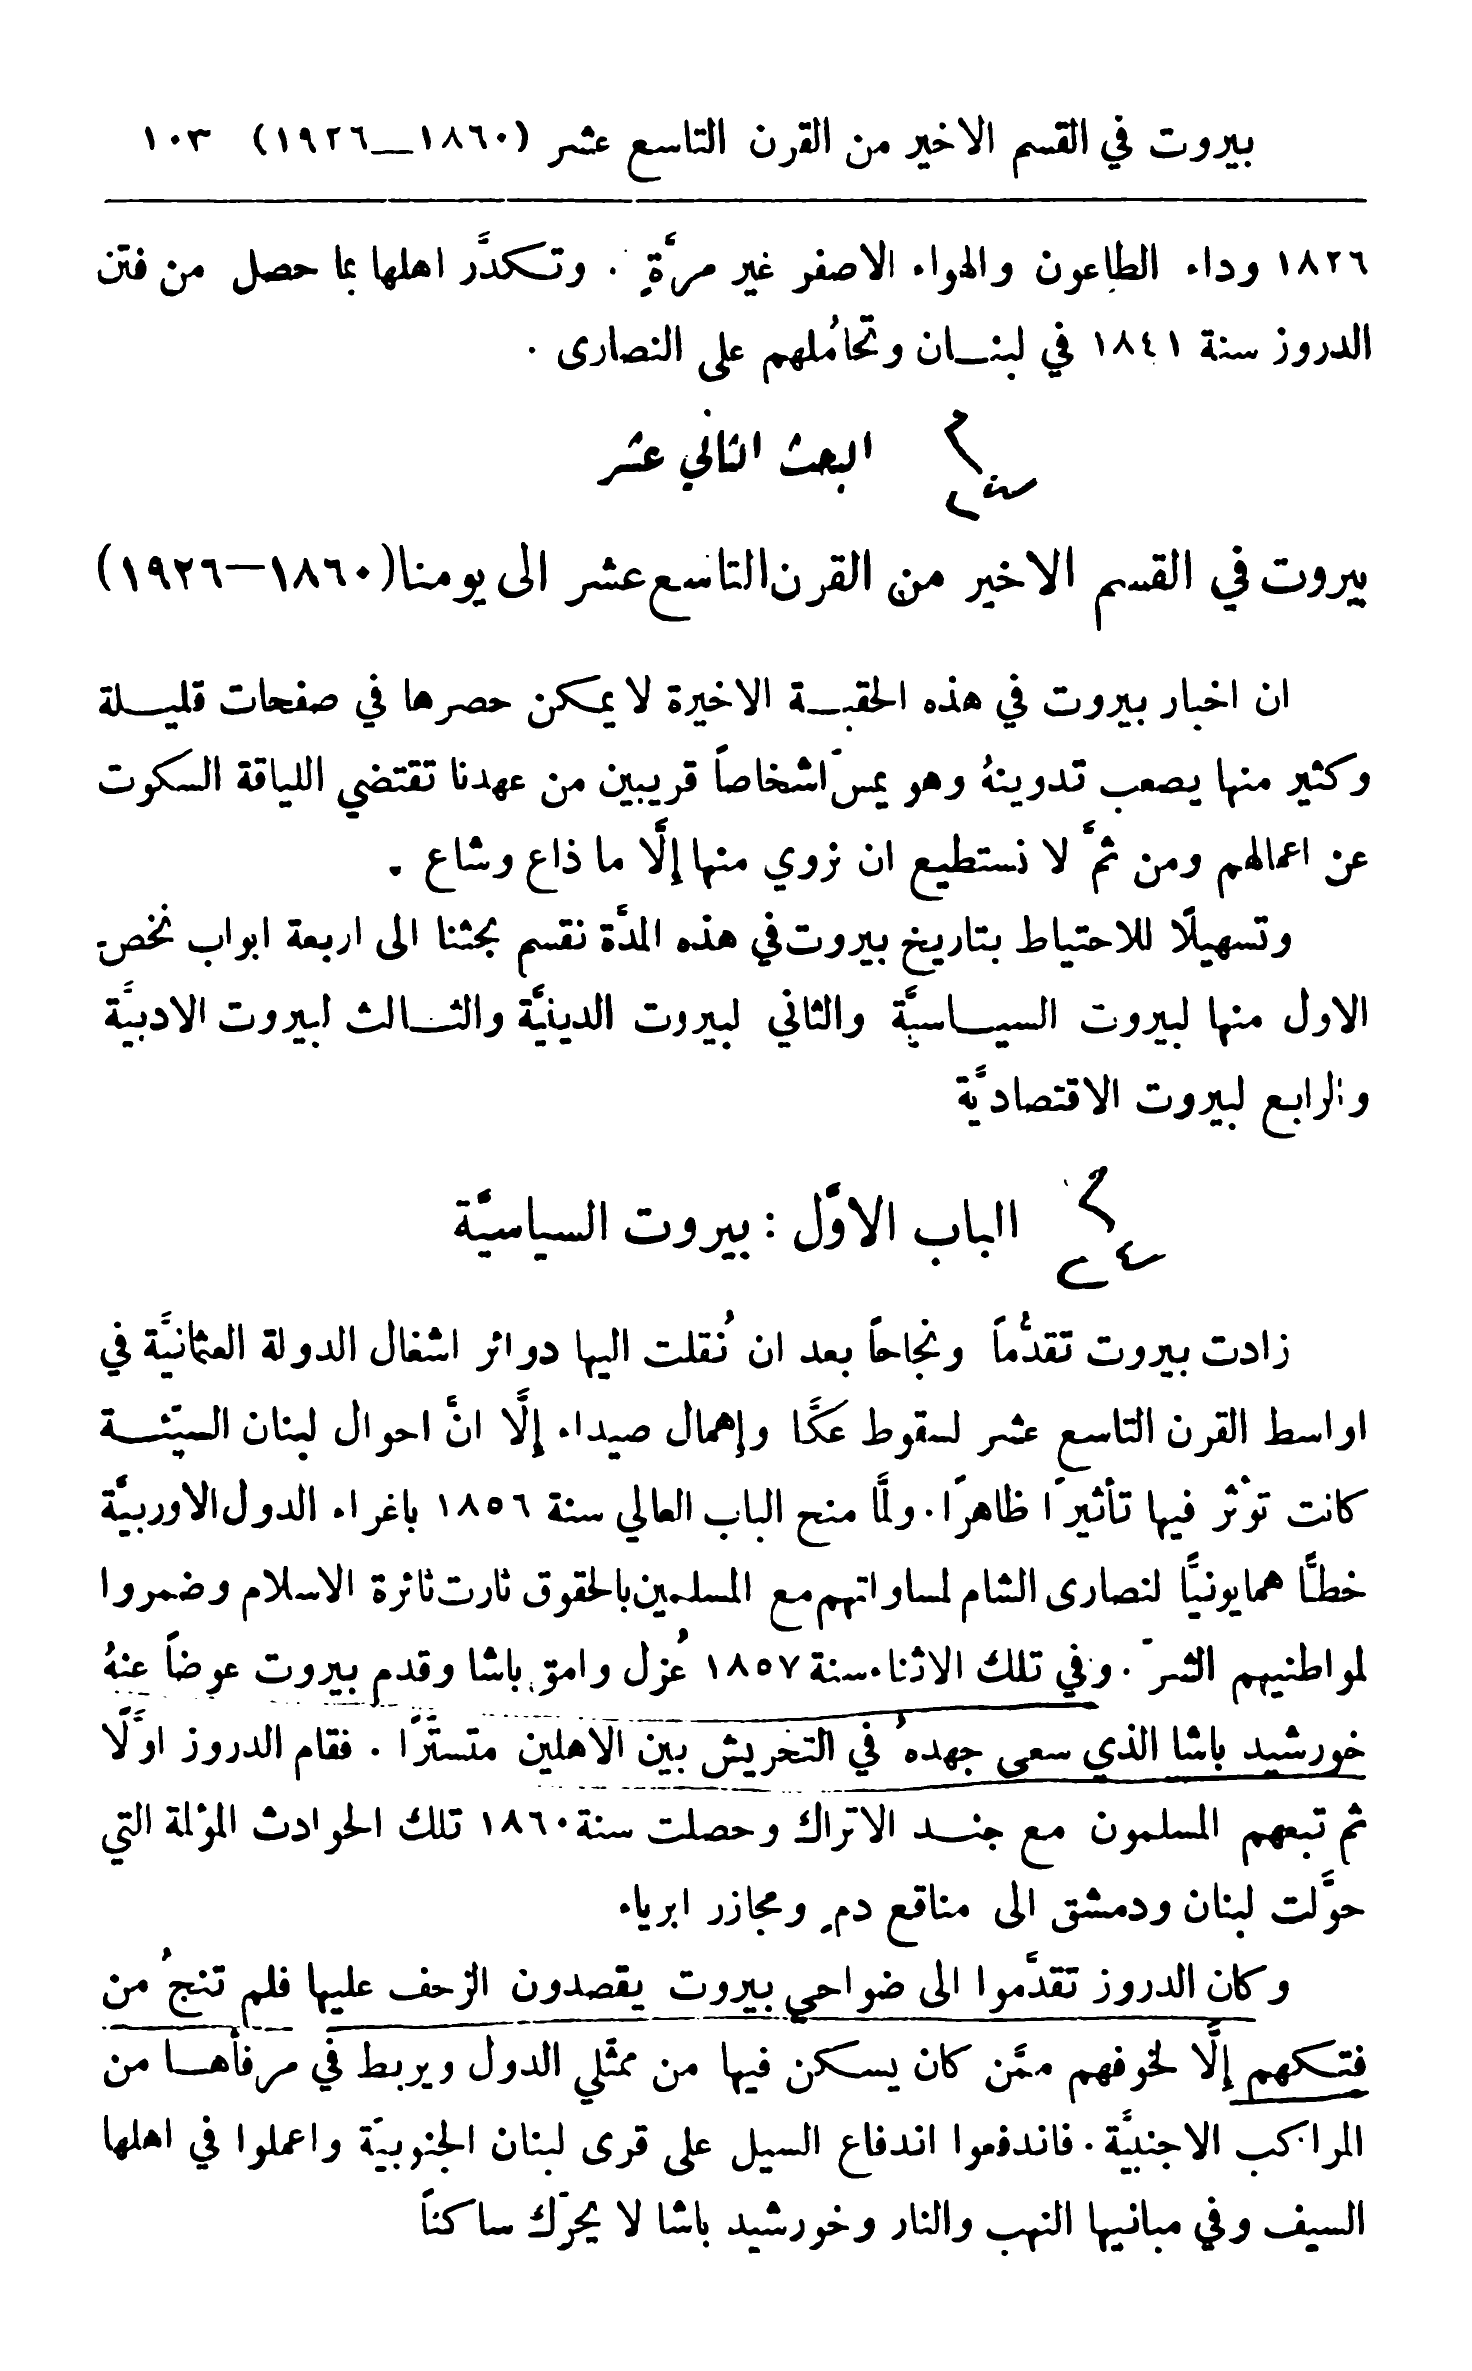 بيروت في القسم الاخير من القرن التاسع عشر (١٨٦٠—١٩٢٦) ١٠٣
١٨٢٦ وداء الطاعون والهواء الاصفر غير مرَّةٍ . وتكدَّر اهلها بما حصل من فتن
الدروز سنة ١٨٤١ في لبنان وتحامُلهم على النصارى .
البحث الثاني عشر
بيروت في القسم الاخير من القرن التاسع عشر الى يومنا (١٨٦٠—١٩٢٦)
ان اخبار بيروت في هذه الحقبة الاخيرة لا يمكن حصرها في صفحات قليلة
وكثير منها يصعب تدوينهُ وهو يمسّ اشخاصاً قريبين من عهدنا تقتضي اللياقة السكوت
عن اعمالهم ومن ثمَّ لا نستطيع ان نروي منها إلَّا ما ذاع وشاع .
وتسهيلًا للاحتياط بتاريخ بيروت في هذه المدَّة نقسم بحثنا الى اربعة ابواب نخصّ
الاول منها لبيروت السياسيَّة والثاني لبيروت الدينيَّة والثالث لبيروت الادبيَّة
والرابع لبيروت الاقتصاديَّة
الباب الاوَّل : بيروت السياسيَّة
زادت بيروت تقدُّماً ونجاحاً بعد ان نُقلت اليها دوائر اشغال الدولة العثمانيَّة في
اواسط القرن التاسع عشر لسقوط عكَّا وإهمال صيداء إلَّا انَّ احوال لبنان السيّئة
كانت تؤثر فيها تأثيرًا ظاهرًا . ولمَّا منح الباب العالي سنة ١٨٥٦ باغراء الدول الاوربيَّة
خطًّا همايونيًّا لنصارى الشام لمساواتهم مع المسلمين بالحقوق ثارت ثائرة الاسلام وضمروا
لمواطنيهم الشرّ . وفي تلك الاثناء سنة ١٨٥٧ عُزل وامق باشا وقدم بيروت عوضاً عنهُ
خورشيد باشا الذي سعى جهدهُ في التحريش بين الاهلين متستّرًا . فقام الدروز اوَّلًا
ثم تبعهم المسلمون مع جند الاتراك وحصلت سنة ١٨٦٠ تلك الحوادث المؤلمة التي
حوَّلت لبنان ودمشق الى مناقع دمٍ ومجازر ابرياء
وكان الدروز تقدَّموا الى ضواحي بيروت يقصدون الزحف عليها فلم تنجُ من
فتكهم إلَّا لخوفهم ممَّن كان يسكن فيها من ممثّلي الدول ويربط في مرفأها من
المراكب الاجنبيَّة . فاندفعوا اندفاع السيل على قرى لبنان الجنوبيَّة واعملوا في اهلها
السيف وفي مبانيها النهب والنار وخورشيد باشا لا يحرّك ساكناً